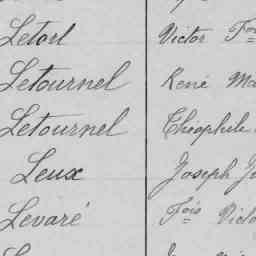 Letorl Victor Fois
Letournel René Ma
Letournel Théophile
Leux Joseph Je
Levaré Fois Victo